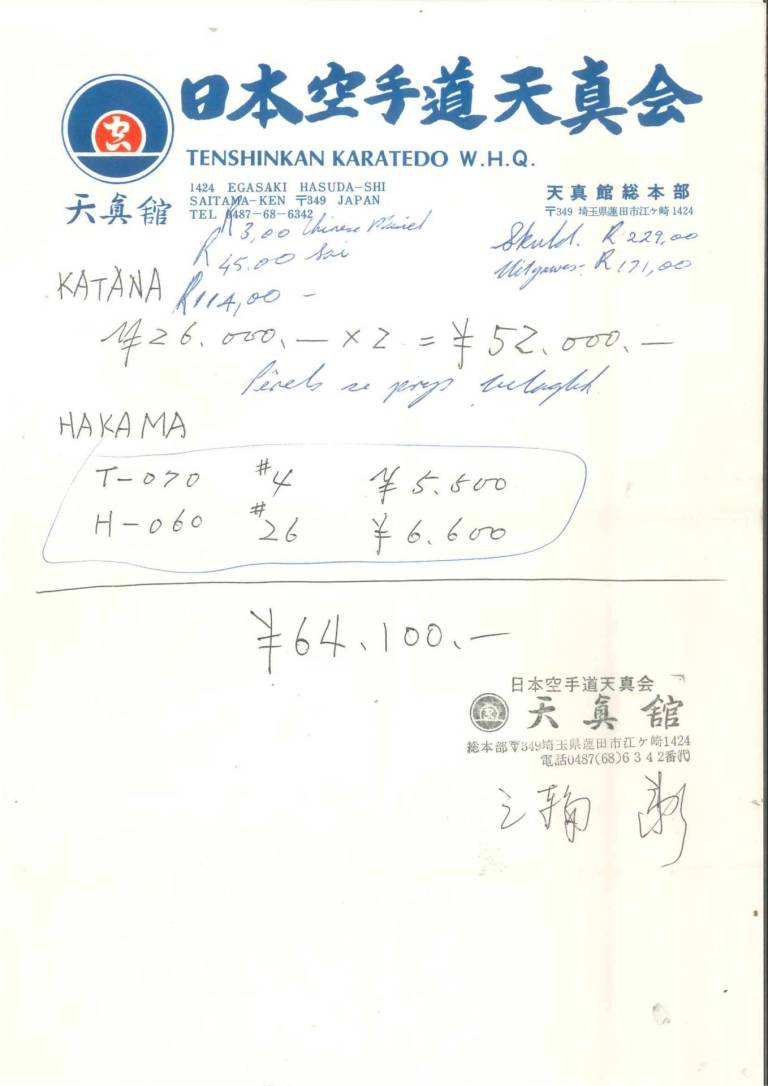 日本空手道天真会
TENSHINKAN KARATEDO W.H.Q.
天真館
1424 EGASAKI HASUDA-SHI
SAITAMA-KEN 〒349 JAPAN
TEL 0487-68-6342
天真館総本部
〒349 埼玉県蓮田市江ヶ崎1424
R3,00 Chinese
R45.00 Sai
R114,00 -
Skuld. R229,00
Uitgewes. R171,00
KATANA
¥26.000.— ×2 = ¥52.000.—
se prys
HAKAMA
T-070 #4 ¥5.500
H-060 #26 ¥6.600
¥64.100.—
日本空手道天真会
天真館
総本部〒349埼玉県蓮田市江ヶ崎1424
電話0487(68)6342番代
三輪